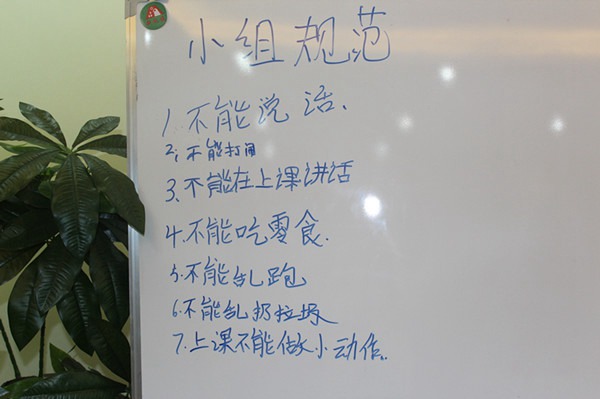 小组规范
1、不能说话、
2、不能打闹
3、不能在上课讲话
4、不能吃零食、
5、不能乱跑
6、不能乱扔垃圾
7、上课不能做小动作。